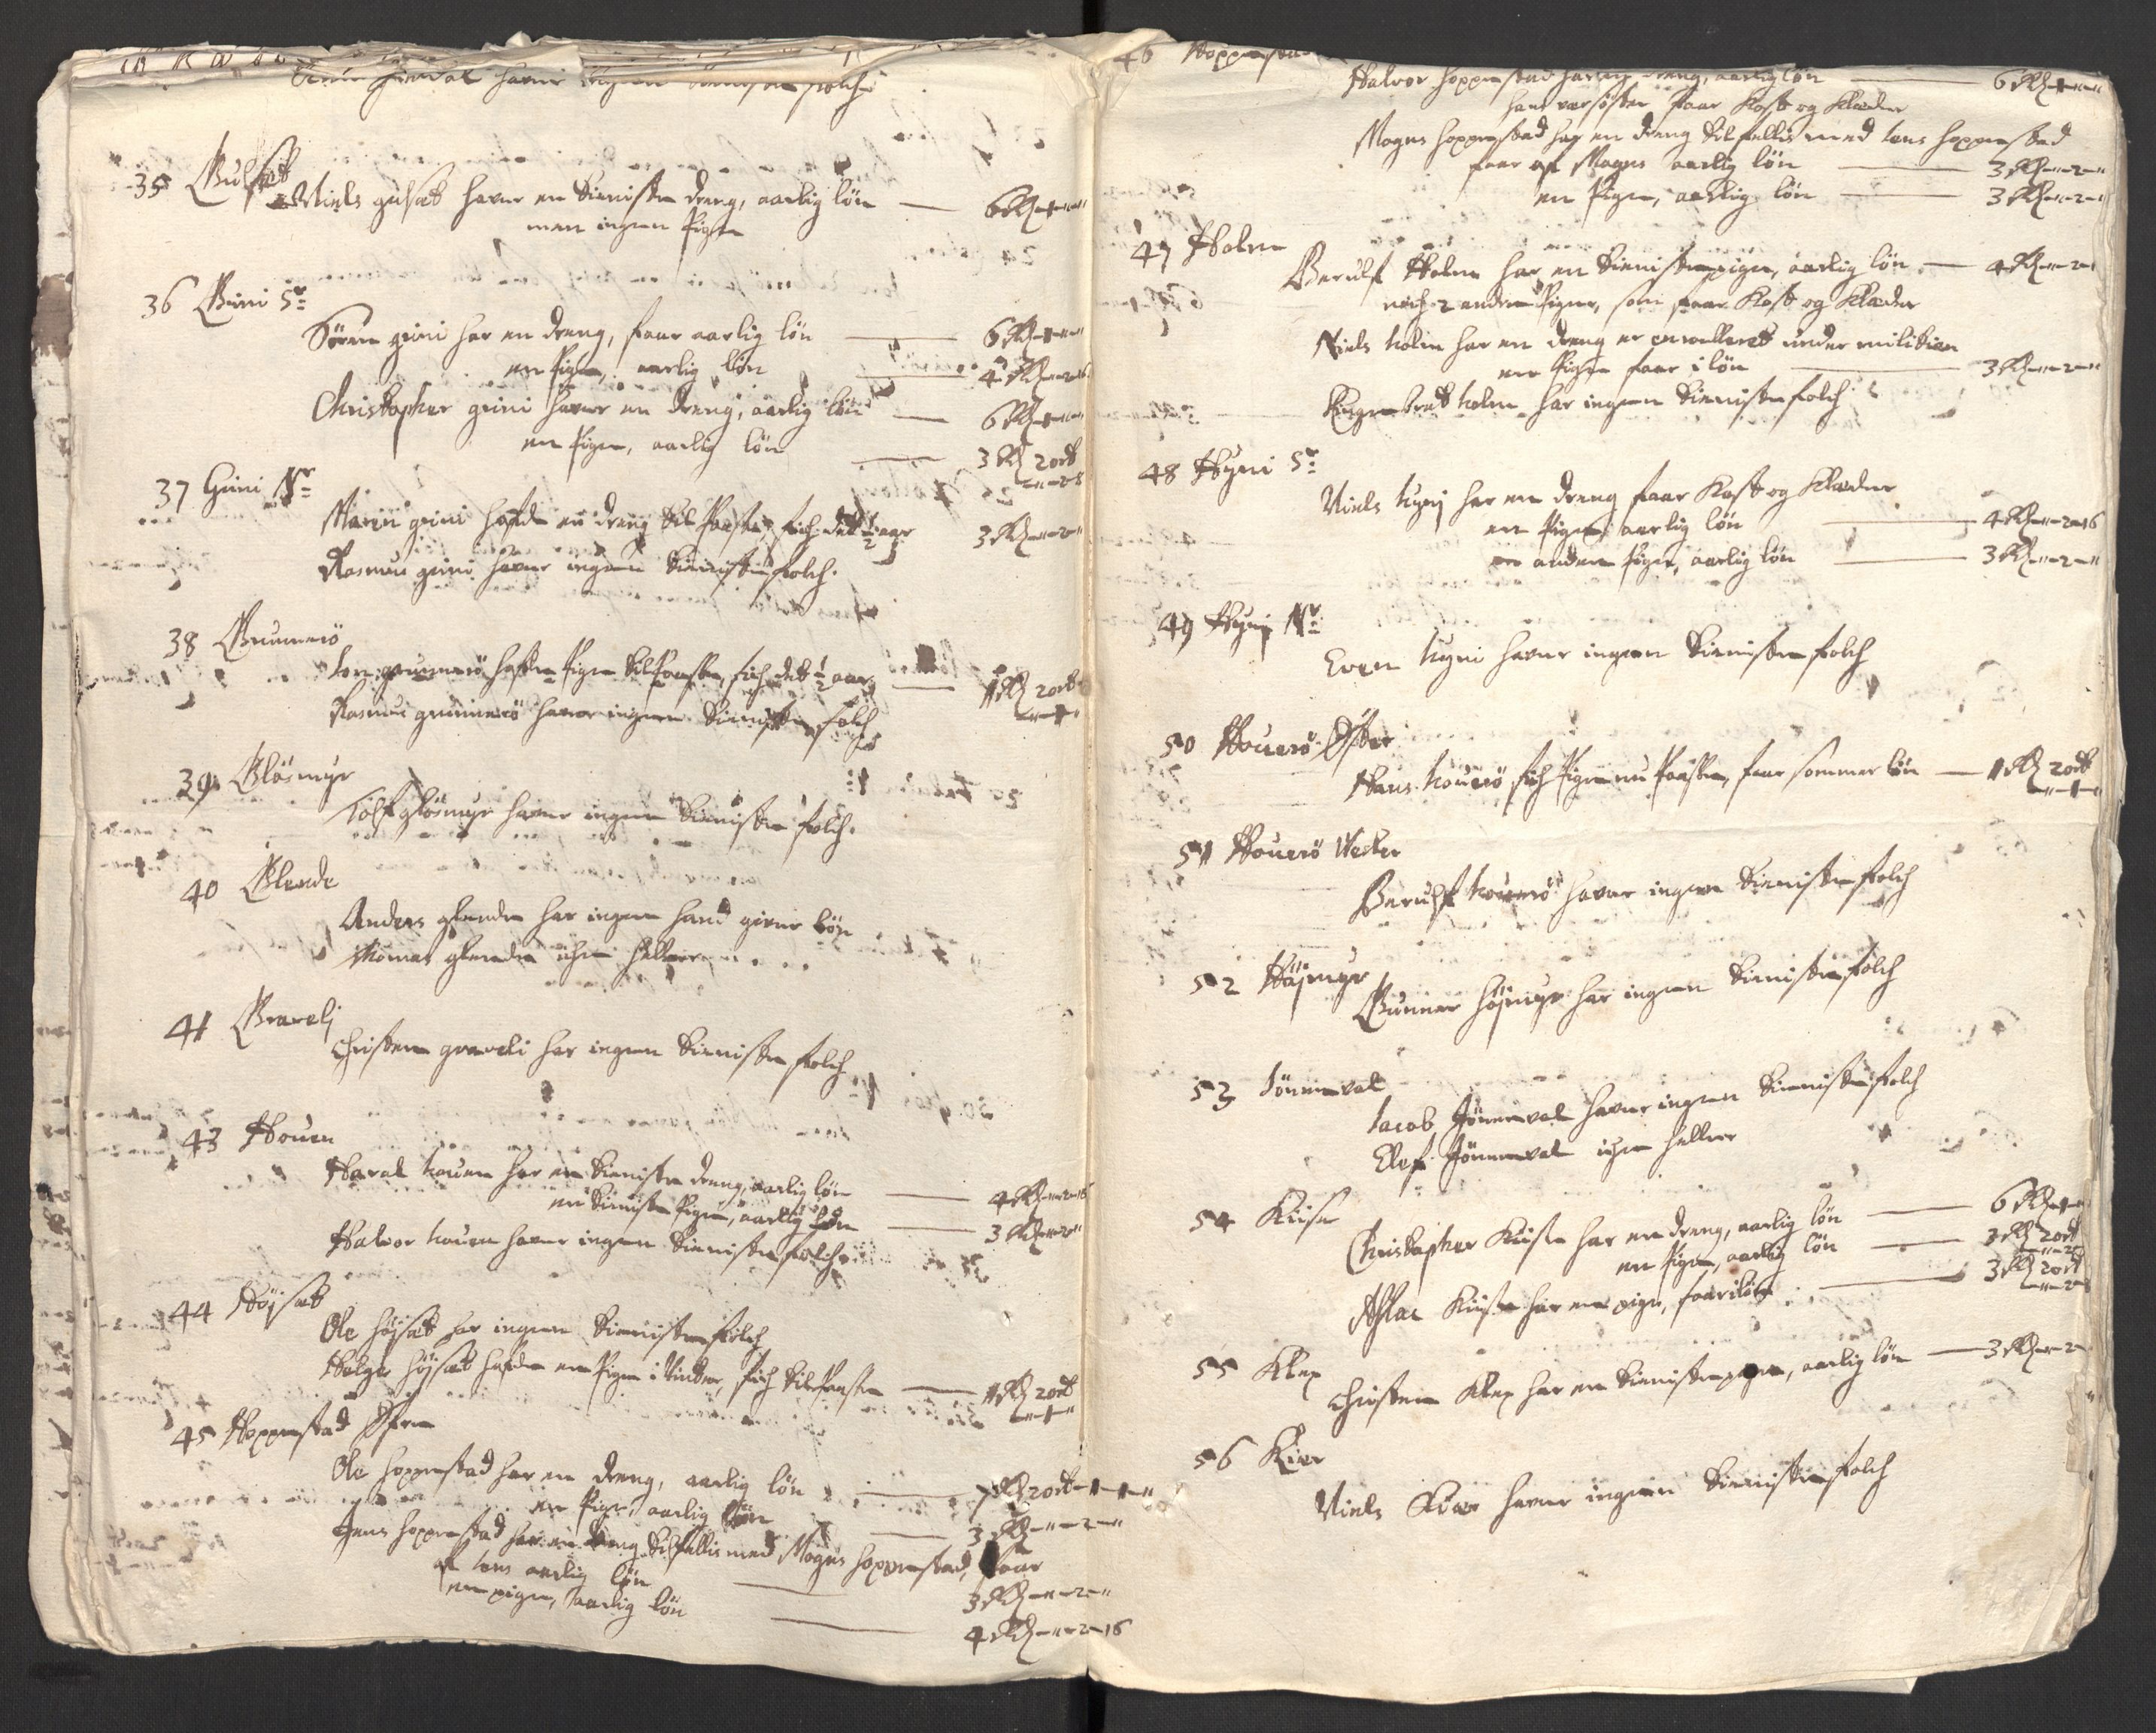 havur ingen tienisten folch
35 Gulsæt
Niels gulsæt havur en tienisten dreng, aarlig lön — 6 Rdl-1-"-"
men ingen Pige
36 Gvini Sr
Sören gvini har en dreng, faar aarlig lön — 6 Rdl-1-"-"
en Pige, aarlig lön — 4 Rdl-"-2-16
Christopher gvini havur en dreng, aarlig lön — 6 Rdl-1-"-"
en Pige, aarlig lön — 3 Rdl 2 ort
"-2-8
37 Gvini Nr
Maren gvini hafde en dreng til Paaske, fich det ½ aar 3 Rdl-"-2-"
Rasmus gvini havur ingen tienisten folch.
38 Grumerö
Jon grumerö hafde Pige til Paaske, fich det ½ aar — 1 Rdl 2 ort
"-1-"
Rasmus grumerö havur ingen tienisten folch
39 Glösmyr
Tolf glösmyr havur ingen tienisten folch.
40 Glende
Anders glende har ingen hand giver lön
Thomas glende iche heller
41 Graveli
Christen graveli har ingen tienisten folch
43 Houen
Haral houen har en tieniste dreng, aarlig lön — 4 Rdl-"-2-16
en tieniste Pige, aarlig lön — 3 Rdl-"-2-"
Halvor houen havur ingen tienisten folch
44 Höjsæt
Ole höjsæt har ingen tienisten folch
Helge höjsæt hafde en Pige i Vinter, fich til Paaske — 1 Rdl 2 ort
"-1-"
45 Hoppestad Öfre
Ole hoppestad har en dreng, aarlig lön — 7 Rdl 2 ort-1-1-"
en Pige, aarlig lön — 3 Rdl-"-2-"
Jens hoppestad har en dreng til fellis med Mogns hoppestad, faar
af Jens aarlig lön — 3 Rdl-"-2-"
en pige, aarlig lön — 4 Rdl-"-2-16
46 Hoppestad
Halvor hoppestad har en dreng, aarlig lön — 6 Rdl-1-"-"
hans söster faar Kost og Klæder
Mogns hoppestad har en dreng til fellis med Jens hoppestad
faar af Mogns aarlig lön — 3 Rdl-"-2-"
en Pige, aarlig lön — 3 Rdl-"-2-"
47 Holm
Berulf Holm har en tieniste pige, aarlig lön — 4 Rdl-"-2-
noch 2 andre Piger, som faar Kost og Klæder
Niels holm har en dreng er enrulleret under militien
en Pige faar i lön — 3 Rdl-"-2-"
Engebret holm har ingen tienisten folch
48 Hyni Sr
Niels hynj har en dreng faar Kost og Klæder
en Pige, aarlig lön — 4 Rdl-"-2-16
en anden Pige, aarlig lön — 3 Rdl-"-2-"
49 Hynj Nr
Even hyni havur ingen tienisten folch
50 Houerö Öster
Hans houerö fich Pige nu Paaske, faar sommer lön — 1 Rdl 2 ort
"-1-"
51 Houerö Vester
Berulf houerö havur ingen tienisten folch
52 Höjmyr
Gunner höjmyr har ingen tienisten folch
53 Jönneval
Jacob Jönneval havur ingen tienisten folch
Elef Jönneval iche heller
54 Kiise
Christopher Kiise har en dreng, aarlig lön — 6 Rdl-1-"
en Pige, aarlig lön — 3 Rdl 2 ort
"-2
Aslac Kiise har en pige, faar i lön — 3 Rdl 2 ort
"-2
55 Klep
Christen Klep har en tieniste pige, aarlig lön — 3 Rdl-"-2-
56 Kier
Niels Kier havur ingen tienisten folch